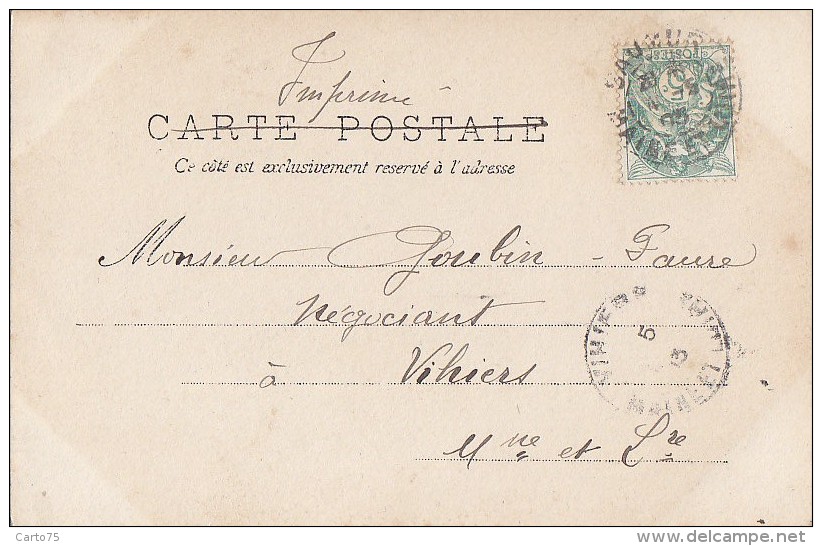 Imprimé
CARTE POSTALE
Ce côté est exclusivement reservé à l'adresse
POSTES
SAUMUR
Monsieur Goubin - Faure
Négociant
à Vihiers
Mne et Lre
VIHIERS
5
Carto75
www.delcampe.net